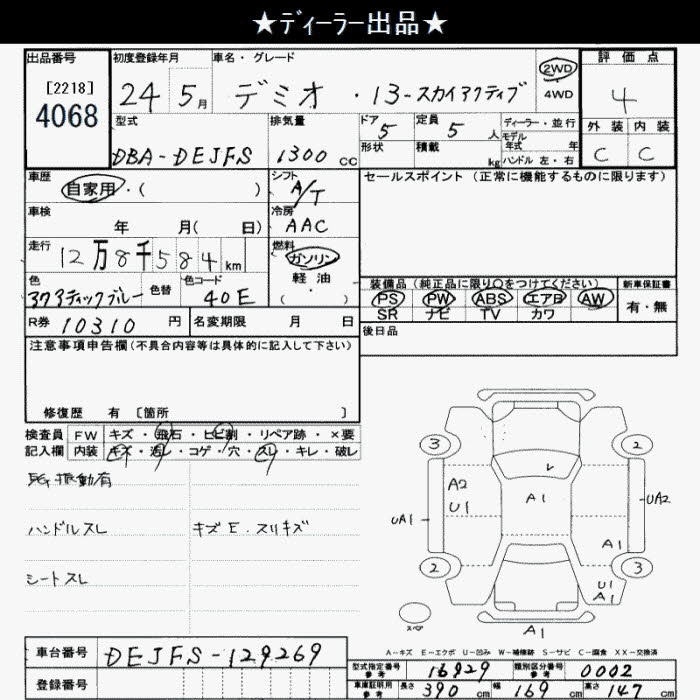 ★ディーラー出品★
出品番号 初度登録年月 車名・グレード 2WD 評価点
[2218] 4068 24 5月 デミオ・13-スカイアクティブ 4WD 4
型式 排気量 ドア 5 定員 5 人 ディーラー・並行 外装 内装
DBA-DEJFS 1300 cc 形状 積載 kg モデル年式 年 C C
ハンドル 左・右
車歴 自家用・( ) シフト A/T セールスポイント (正常に機能するものに限ります)
車検 年 月( 日) 冷房 AAC
走行 12万8千584km 燃料 ガソリン
軽油
・( )
色 色替 色コード 40E
装備品(純正品に限り○をつけてください) 新車保証書
PS PW ABS エアB AW 有・無
SR ナビ TV カワ
R券 10310 円 名変期限 月 日 後日品
注意事項申告欄(不具合内容等は具体的に記入して下さい)
修復歴 有 [箇所 ]
検査員 FW キズ・飛石・ヒビ割・リペア跡・×要
記入欄 内装 キズ・汚レ・コゲ・穴・スレ・キレ・破レ
振動有
ハンドルスレ キズE・スリキズ
シートスレ
3 2
A2 U1 A1 UA2
UA1
A1
2 3
U1
A1
スペア
A1
A-キズ E-エクボ U-凹み W-補修跡 S-サビ C-腐食 XX-交換済
車台番号 DEJFS-129269
型式指定番号 参考 16929 類別区分番号 参考 0002
登録番号 車庫証明用 参考 長さ 390 cm 幅 169 cm 高さ 147 cm